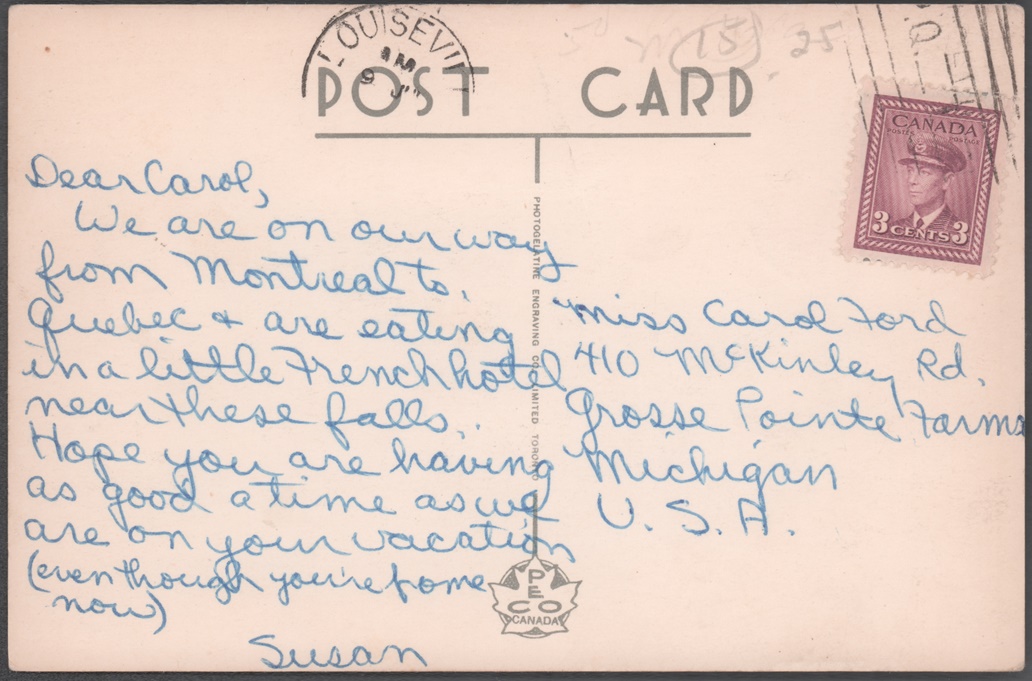 LOUISEVI
AM
9 J
15 25
P.Q.
POST CARD
CANADA
POSTES POSTAGE
3 CENTS 3
Dear Carol,
We are on our way
from Montreal to
Quebec & are eating
in a little French hotel
near these falls.
Hope you are having
as good a time as we
are on your vacation
(even though you're home
now)
Susan
PHOTOGELATINE ENGRAVING CO. LIMITED TORONTO
Miss Carol Ford
410 McKinley Rd.
Grosse Pointe Farms
Michigan
U. S. A.
PECO
CANADA